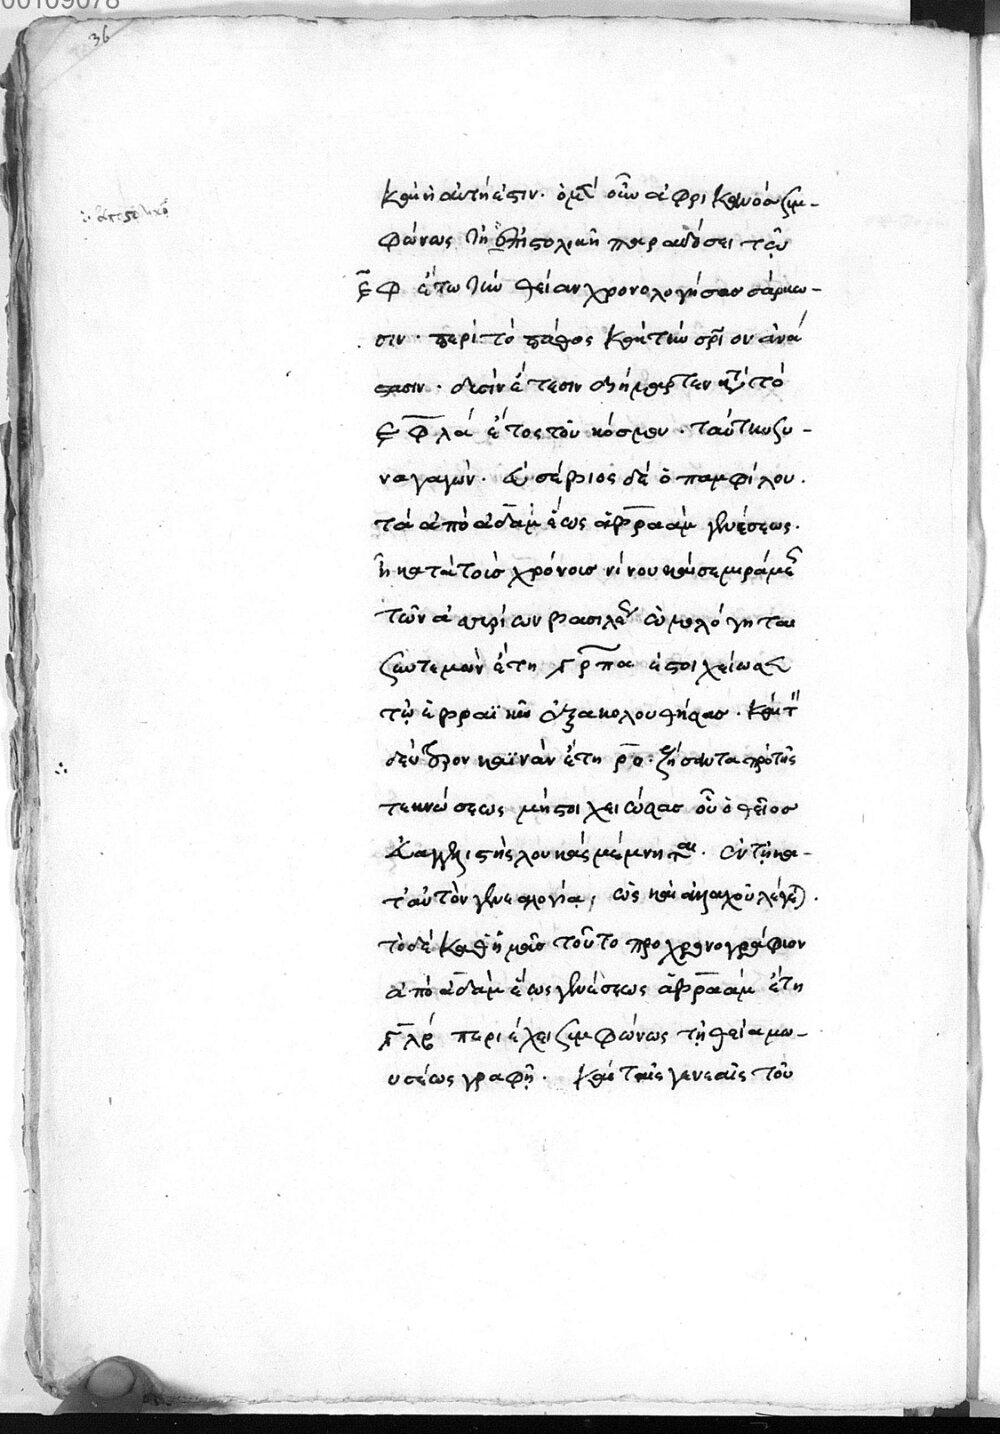 00109078
36
καὶ ἡ αὐτή ἐστιν. ὁ μὲν οὖν ἀφρικανὸς συμ-
φώνως τῇ ἀποστολικῇ παραδόσει τῷ
͵εφ ἔτω τὴν θείαν χρονολογήσας σάρκω-
σιν. περὶ τὸ πάθος καὶ τὴν σρίον ἀνά
στασιν. δυσὶν ἔτεσιν διήμαρτεν κατὰ τὸ
͵εφλα ἔτος τοῦ κόσμου. ταύτην συ-
ναγαγών. εὐσέβιος δὲ ὁ παμφίλου.
τὰ ἀπὸ ἀδὰμ ἕως ἀβραὰμ γενέσεως.
ἢ κατὰ τοὺς χρόνους νίνου καὶ σεμιράμεως
τῶν ἀσυρίων βασιλέων ὡμολόγηται
συντεμὼν ἔτη ͵γρπα ἐστοιχείωσε
τῷ ἑβραϊκῷ ἐξακολουθήσας. καὶ τὸν
δεύτερον καϊνὰν ἔτη ρο. ζήσαντα πρὸ τῆς
τεκνώσεως μὴ στοιχειώσας οὗ ὁ θεῖος
εὐαγγελιστὴς λουκᾶς μέμνηται. ἐν τῇ κα-
τ' αὐτὸν γενεαλογίᾳ, ὡς καὶ ἀλλαχοῦ λέγεται.
τὸ δὲ καθ' ἡμᾶς τοῦτο προχρονογράφιον
ἀπὸ ἀδὰμ ἕως γενέσεως ἀβραὰμ ἔτη
͵γλβ περιέχει συμφώνως τῇ θείᾳ μω-
υσέως γραφῇ. καὶ ταῖς γενεαῖς τοῦ